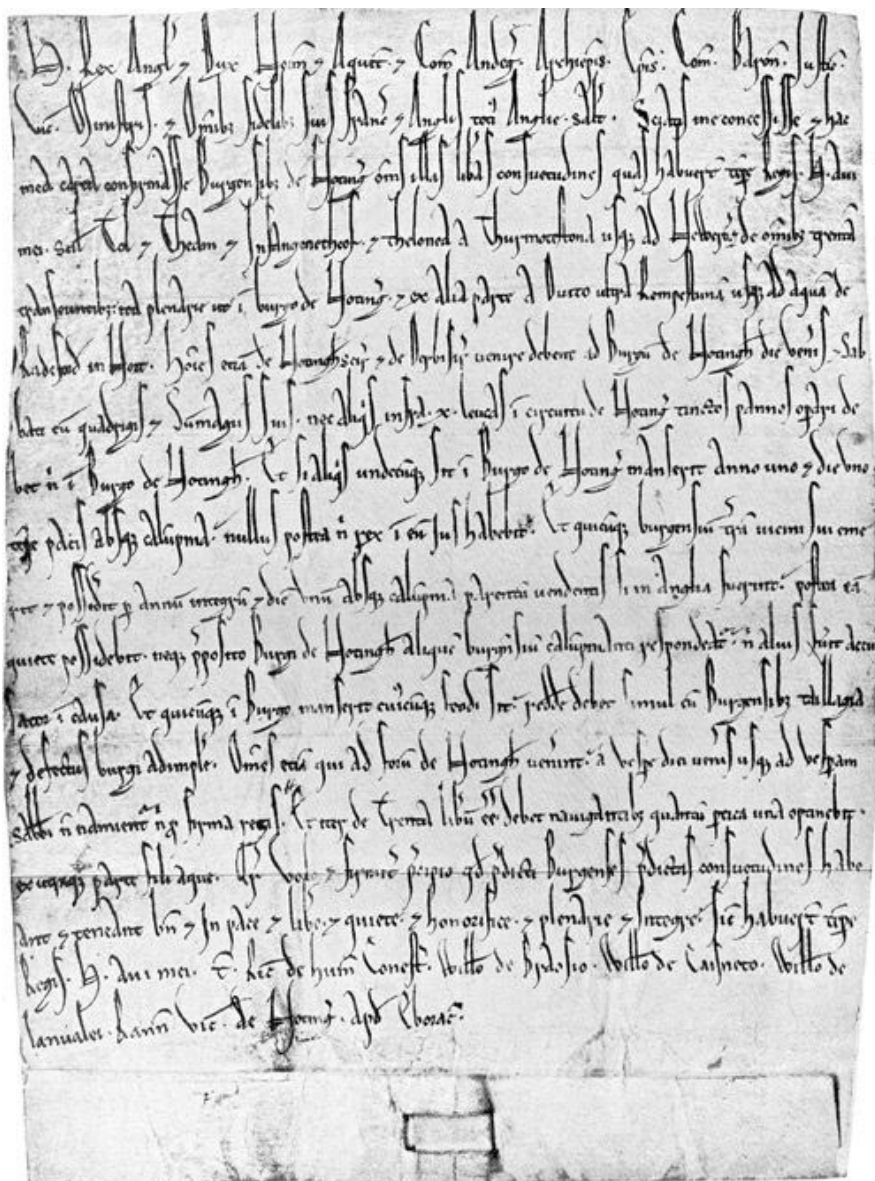 H. Rex Angł ⁊ Dux Norm̄ ⁊ Aquit̄. ⁊ Com̄ Andeg̃. Archiepis̄. Ep̄is. Com̄. Baron̄. Justic̄.
Vic̄. Ministris. ⁊ Om̄ibȝ fidelibȝ suis Franc̄ ⁊ Anglis toci Anglie. Salt̄. Sciatis me concessisse ⁊ hac
mea carta confirmasse Burgensibȝ de Noting̃ om̄s illas lib̄as consuetudines quas habuert̄ tp̄re Regis. H. aui
mei. Scil Tol ⁊ Theam ⁊ Infangenetheof. ⁊ thelonea a Thurmotestona usqȝ ad Newerc̄. ⁊ de om̄ibȝ trenta
transeuntibȝ: ita plenarie ut i burgo de Noting̃. ⁊ ex alia parte a Ducto ultra Rempestunā usqȝ ad aquā de
Radeford in Nort. hoīes etiā de Notinghāscir̄ ⁊ de Derbisir̄ venire debent ad Burgū de Notingh̄ die ven̄is ⁊ Sab
bati cū quadrigis ⁊ Sum̄agiis suis. nec aliqis infra .x. leucas i circuitu de Noting̃ tinctos pannos op̄ari de
bet n̄ i Burgo de Notingh̄. Et si aliqis undecūqȝ sit i Burgo de Noting̃ manserit anno uno ⁊ die uno
tp̄re pacis absqȝ calūpnia. nullus postea n̄ rex i eū Jus habebit. Et quicūqȝ burgensiū tr̄ā uicini sui eme
rit ⁊ possedit p̄ annū integrū ⁊ diē unū absqȝ calūpnia parentū uendentis si in anglia fuerint. postea eā
quiete possidebit. neqȝ p̄posito Burgi de Notingh̄ aliquē burgensiū calūpnianti respondeat̄. n̄ alius fuit accu
sator i causa. Et quicūqȝ i Burgo manserit cuicūqȝ feodi sit. redde debet simul cū Burgensibȝ tallagia
⁊ defectus burgi adimple. Om̄es etiā qui ad forū de Notingh̄ ven̄int. a vesp̄e diei ven̄is usqȝ ad vesp̄am
sabbi n̄ namient̄ n̄ p̄ firma regis. Et iter de Trenta lib̄um ēē debet nauigantibȝ quantū p̄tica una optinebit.
ex utraqȝ parte fili aque. Qr̄ Volo ⁊ firmit̄ p̄cipio qd̄ p̄dicti Burgenses p̄dictas consuetudines habe
ant ⁊ teneant bn̄ ⁊ In pace ⁊ libe. ⁊ quiete. ⁊ honorifice. ⁊ plenarie ⁊ Integre. sic̄ habuert̄ tp̄re
Regis. H. aui mei. T̄. Ric̄ de hum̄ Conest̄. Willo de Braosio. Willo de Caisneto. Willo de
Lanualei. Rann̄ Vic̄. de Noting̃. Apd̄ Eborac̄.